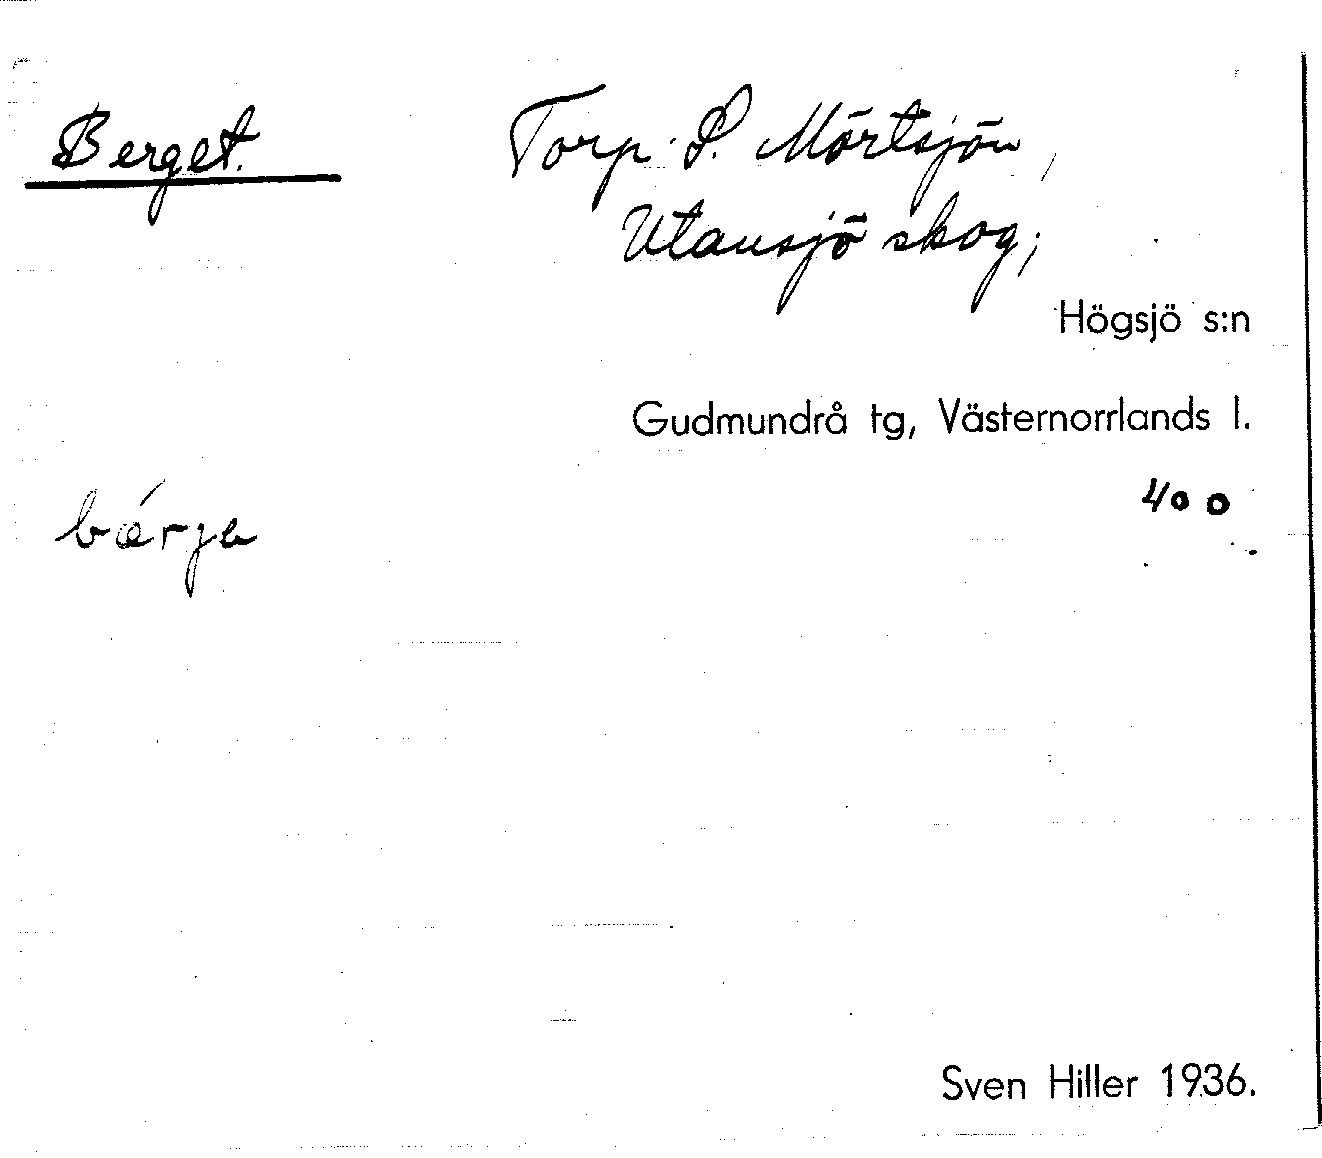 Berget. Torp S. Mörtsjön,
Utansjö skog;
Högsjö s:n
Gudmundrå tg, Västernorrlands l.
400
bærje
Sven Hiller 1936.